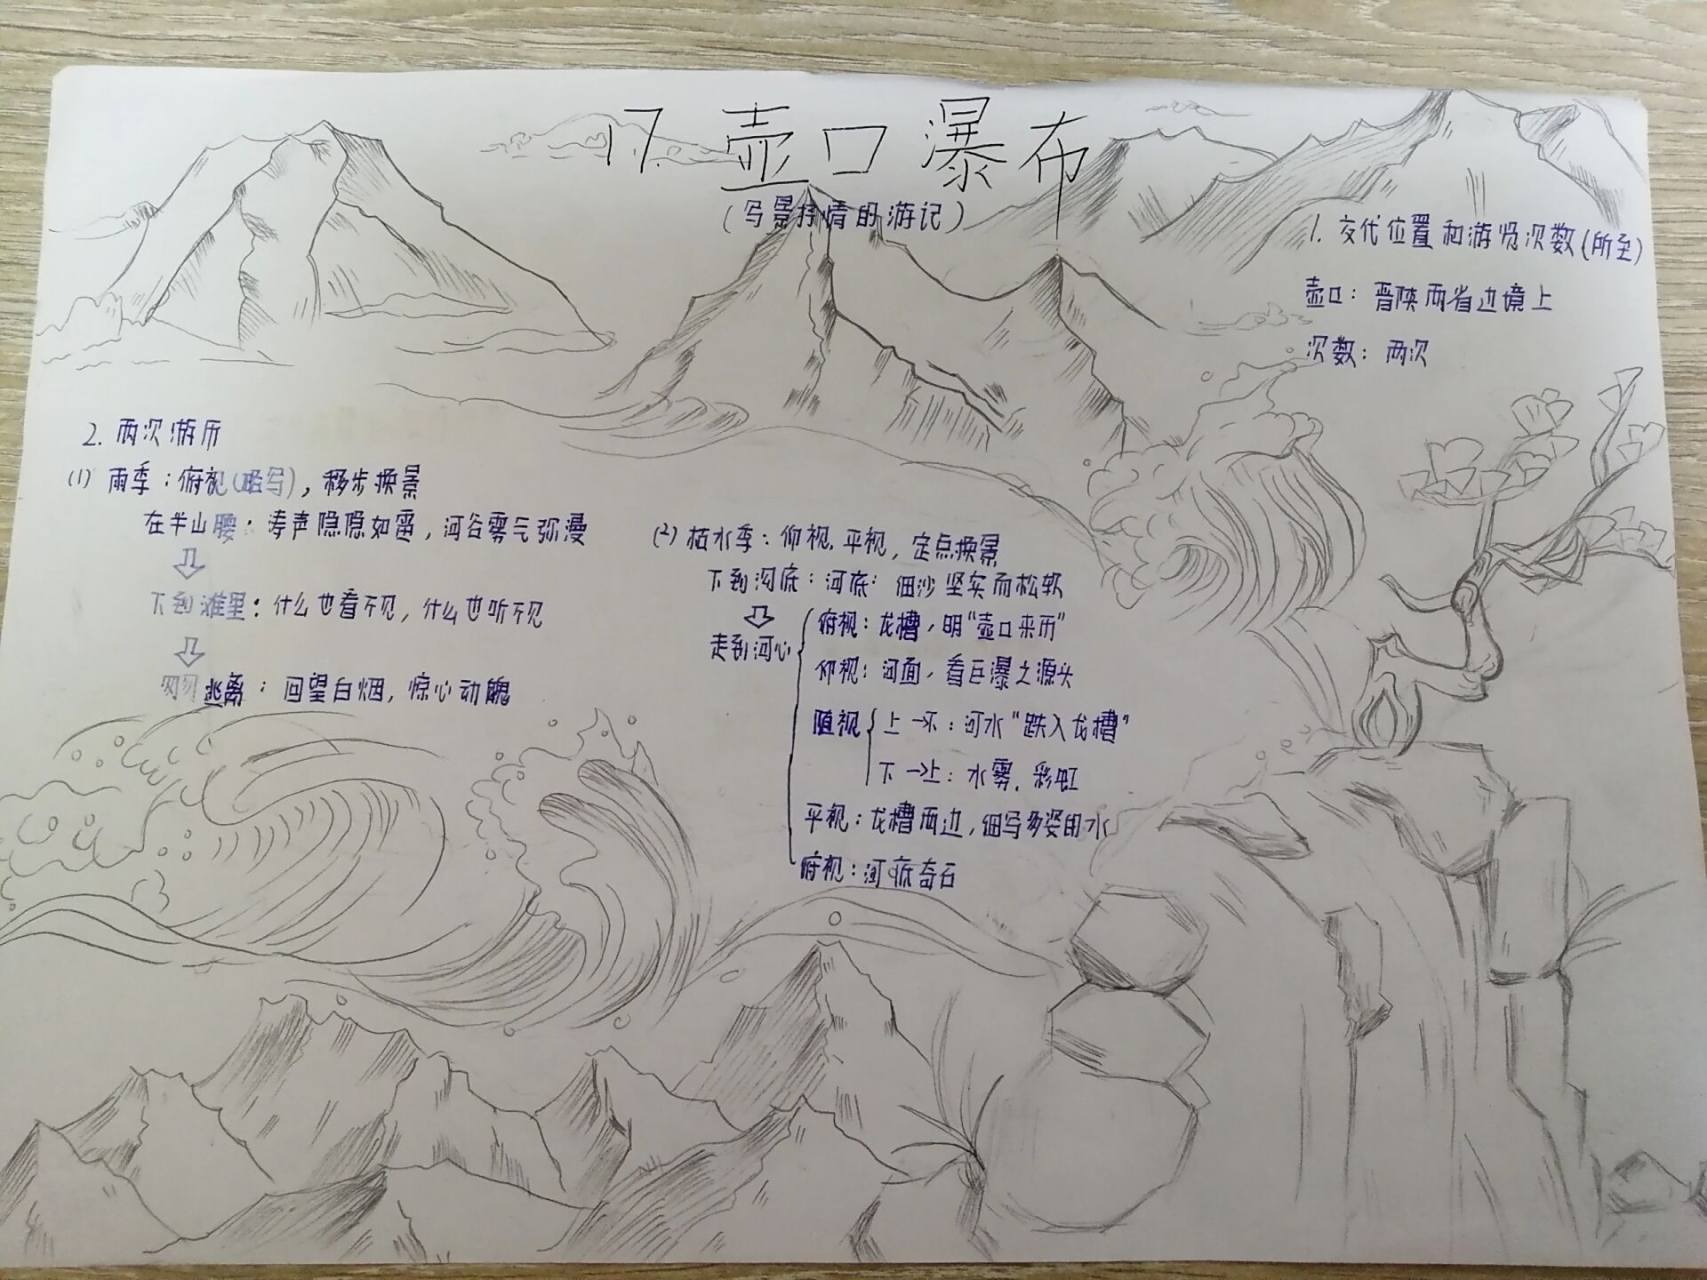 17.壶口瀑布
(写景抒情的游记)
1. 交代位置和游览次数(所至)
壶口：晋陕两省边境上
次数：两次
2. 两次游历
(1) 雨季：俯视(略写)，移步换景
在半山腰：涛声隐隐如雷，河谷雾气弥漫
下到滩里：什么也看不见，什么也听不见
匆匆逃离：回望白烟，惊心动魄
(2) 枯水季：仰视.平视，定点换景
下到沟底：河底：细沙坚实而松软
走到河心
俯视：龙槽，明“壶口来历”
仰视：河面，看巨瀑之源头
随视
上→下：河水“跌入龙槽”
下→上：水雾.彩虹
平视：龙槽两边，细写多姿的水
俯视：河底奇石